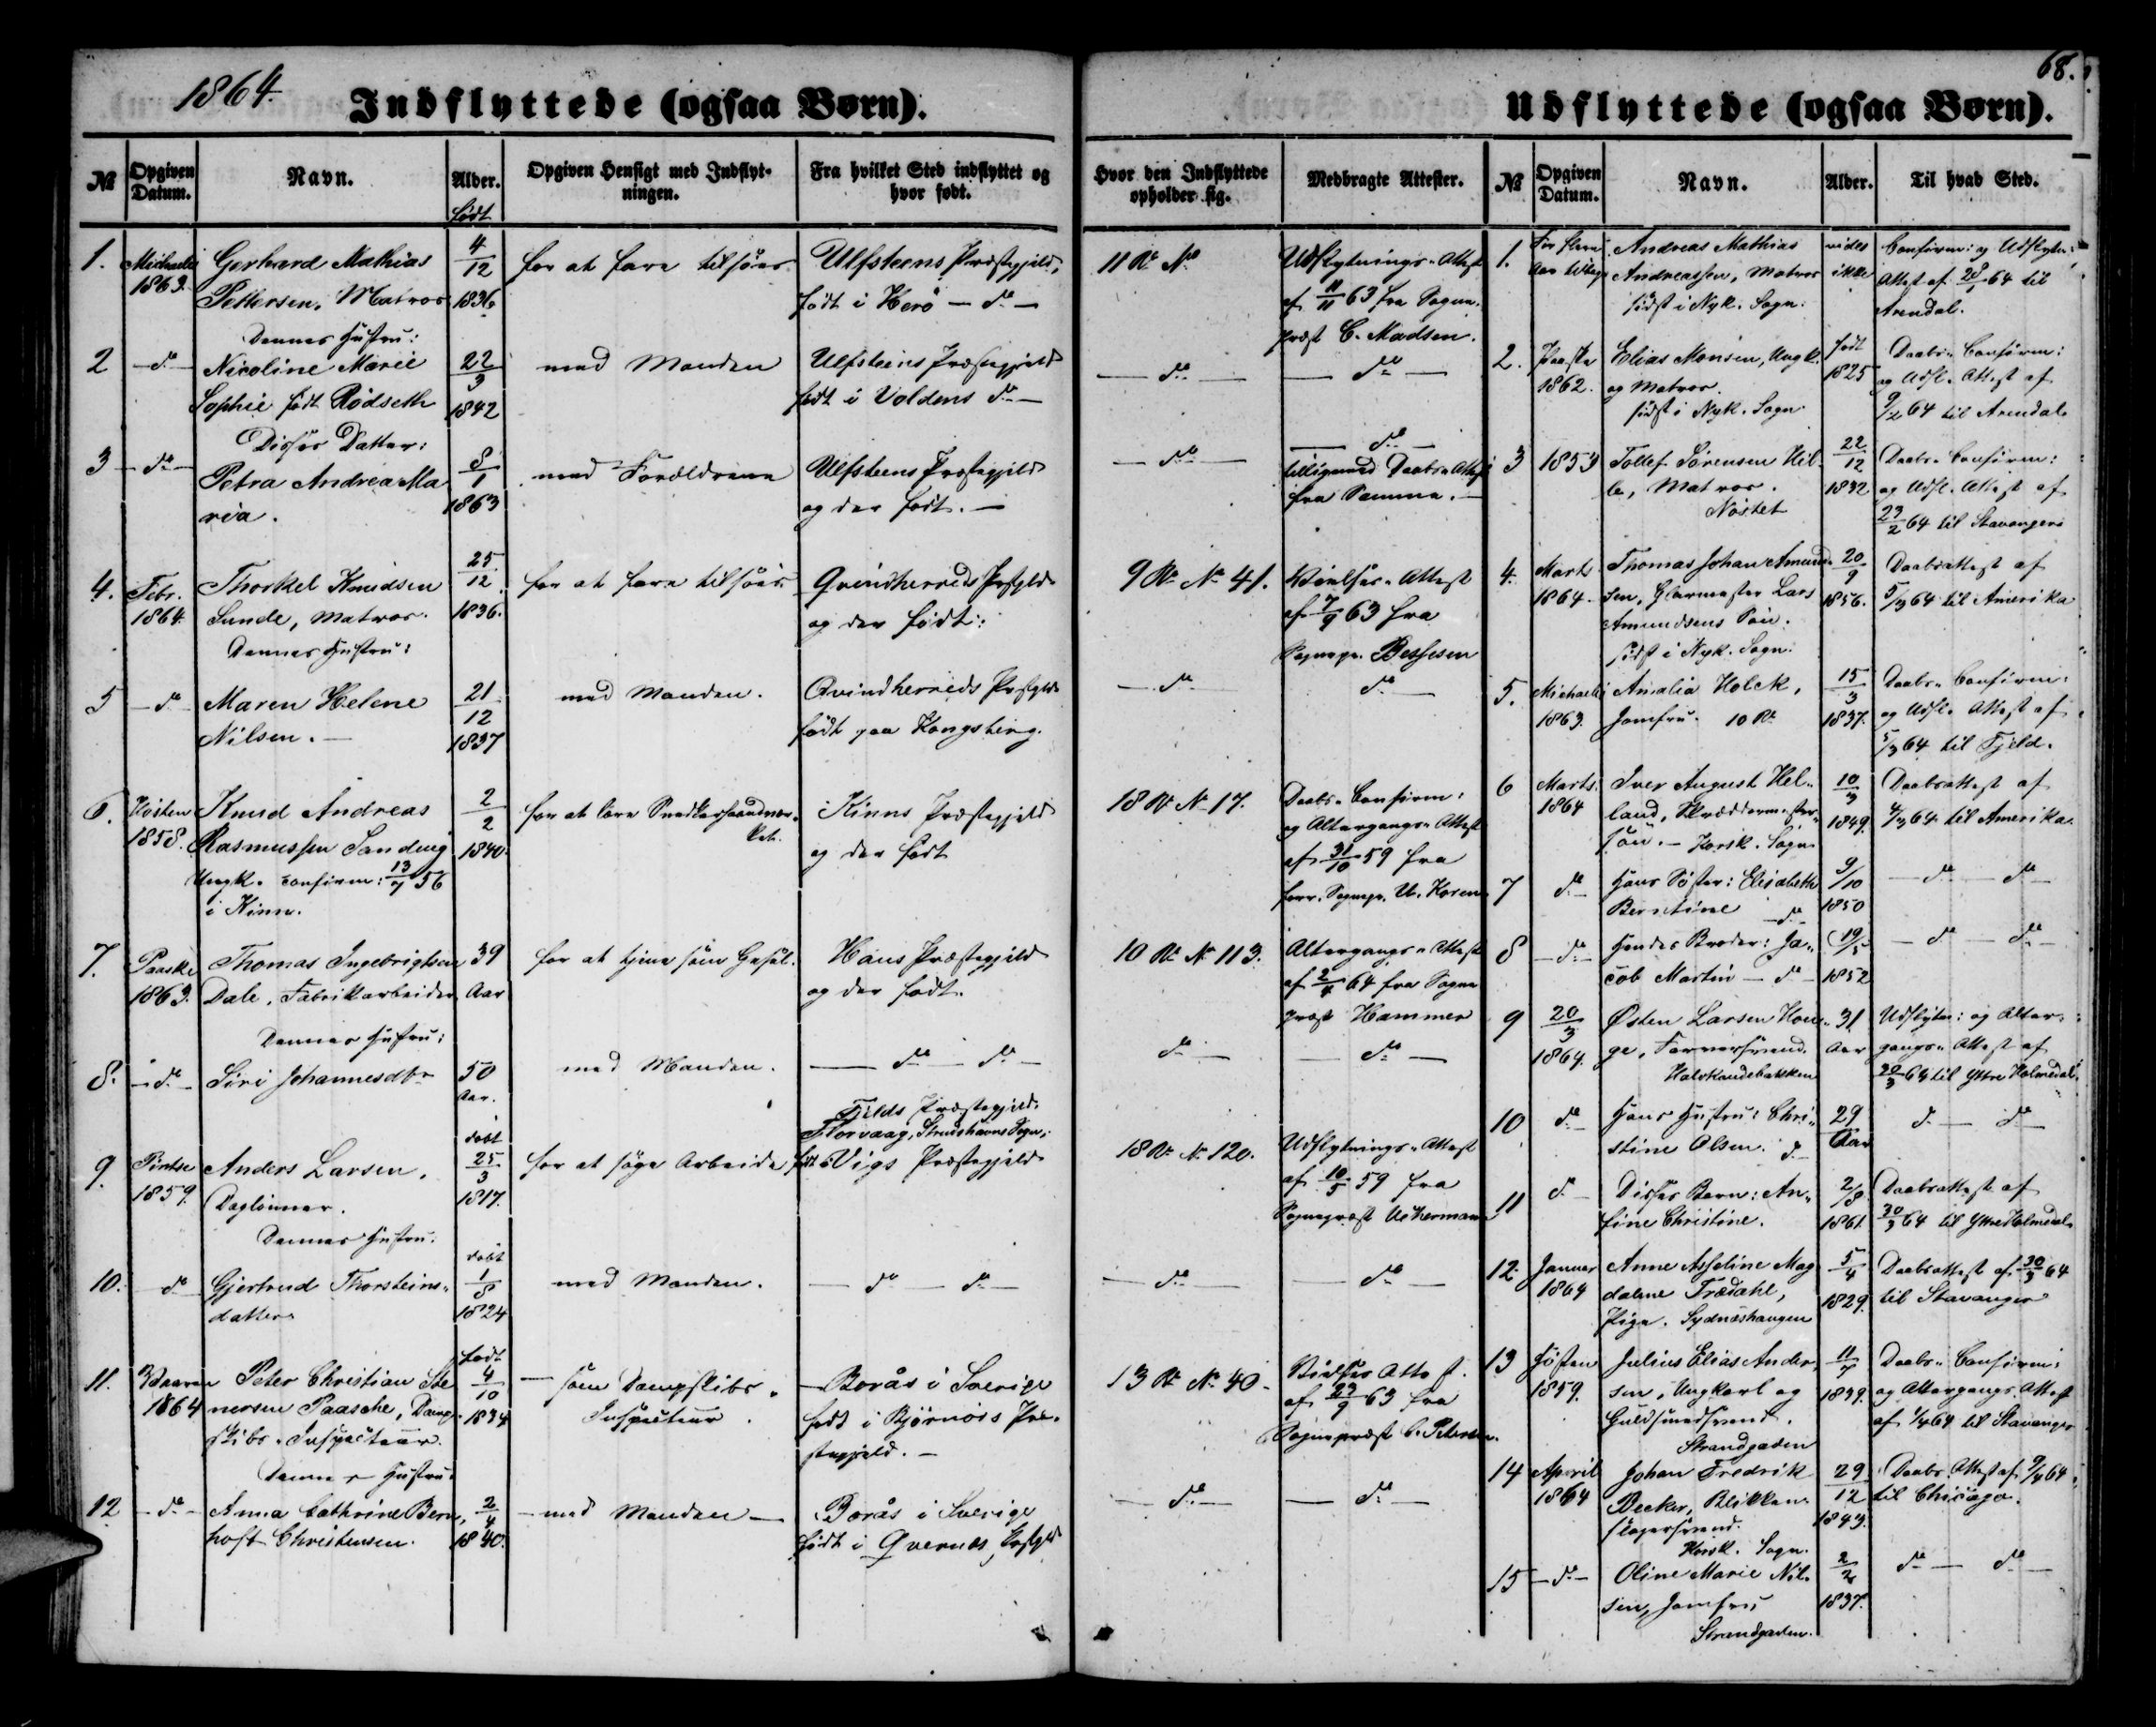 1864.
Indflyttede (ogsaa Børn).
№
Opgiven Datum.
Navn.
Alder.
født
Opgiven Hensigt med Indflyt-
ningen.
Fra hvilket Sted indflyttet og
hvor født.
Hvor den Indflyttede
opholder sig.
Medbragte Attester.
1. Michaeli 1863.
Gerhard Mathias
Pettersen, Matros
4/12 1836
for at fare tilsöes
Ulfsteens Præstegjeld,
født i Herö – do –
11 Rd. No
Udflytnings-Attest
af 11/11 63 fra Sogne-
præst C. Madsen.
Dennes Hustru:
2 – do –
Nicoline Marie
Sophie født Rödseth
22/3 1842
med Manden
Ulfsteens Præstegjeld
født i Voldens do –
– do –
– do –
Disses Datter:
3 – do –
Petra Andrea Ma
ria.
8/1 1863
med Forældrene
Ulfsteens Præstegjeld
og der født. –
– do –
– do –
tilligemed Daabs-Attest
fra Samme. –
4. Febr. 1864.
Thorkel Knudsen
Sunde, Matros.
25/12 1836.
for at fare tilsöes
Qvindherreds Præstgld.
og der født:
9 Rd. No 41.
Vielses-Attest
af 7/9 63 fra
Sognepr. Bessesen
Dennes Hustru:
5 – do –
Maren Helene
Nilsen. –
21/12 1837
med Manden.
Qvindherreds Præstgld.
født paa Kongsberg.
– do –
do –
6. Høsten 1858.
Knud Andreas
Rasmussen Sandvig
Ungk. confirm: 13/7 56
i Kinn.
2/2 1840.
for at lære Snedkerhaandvær-
ket.
i Kinns Præstegjeld
og der født
18 Rd. No 17.
Daabs- Confirm:
og Altergangs-Attest
af 31/10 59 fra
Sognepr. U. Koren
7. Paaske 1863.
Thomas Ingebrigtsen
Dale, Fabrikarbeider
39 Aar
for at tjene som
Haus Præstegjeld
og der født.
10 Rd. No 113.
Altergangs-Attest
af 2/4 64 fra Sogne
præst Hammer
Dennes Hustru:
8. – do –
Siri Johannesdtr
50 Aar.
med Manden.
– do – do –
do –
– do –
9. Pintse 1859.
Anders Larsen,
Daglönner.
døbt 25/3 1817.
for at söge Arbeide
Fjelds Præstegjeld.
Florvaag, Strudshavns Sogn,
født i Vigs Præstegjeld
18 Rd. No 120.
Udflytnings-Attest
af 10/5 59 fra
Sognepræst Uchermann
Dennes Hustru:
10. do
Gjertrud Thorsteins-
datter
døbt 1/8 1824
med Manden.
– do – do –
– do –
– do –
11. Vaaren 1864
Peter Christian Ste
nersen Paasche, Damp-
skibs-Inspecteur.
født 4/10 1834
– som Dampskibs-
Inspecteur.
– Borås i Sverige
født i Björnörs Præ-
stegjeld. –
13 Rd. No 40.
Vielses Attest.
af 23/9 63 fra
Sognepræst C. Petersen.
Dennes Hustru:
12 – do –
Anna Cathrine Bern,
hoft Christensen.
2/4 1840.
– med Manden –
Borås i Sverige
født i Qvernes, Præstgld
– do –
– do –
68.
Udflyttede (ogsaa Børn).
№
Opgiven Datum.
Navn.
Alder.
Til hvad Sted.
1. For flere Aar tilbage
Andreas Mathias
Andreassen, Matros
födt i Nyk. Sogn.
vides ikke
Confirm: og Udflytn:
Attest af 28/1 64 til
Arendal.
2. Paaske 1862.
Elias Monsen, Ungk.
og Matros.
födt i Nyk. Sogn
født 1825
Daabs- Confirm:
og Udfl. Attest af
9/2 64 til Arendal.
3 1853
Tollef Sörensen Hil-
le, Matros.
Nöstet
22/12 1832
Daabs- Confirm:
og Udfl. Attest af
23/2 64 til Stavanger
4. Marts 1864.
Thomas Johan Amund-
sen, Glarmester Lars
Amundsens Sön.
födt i Nyk. Sogn.
20/9 1856.
Daabsattest af
5/3 64 til Amerika
5. Michaeli 1863.
Amalia Holck,
Jomfru. 10 Rd.
15/3 1837.
Daabs- Confirm:
og Udfl. Attest af
5/3 64 til Fjeld.
6 Marts 1864
Iver August Hel-
land, Skræddermester-
sön. – Korsk. Sogn
10/3 1849.
Daabsattest af
4/3 64 til Amerika.
7 do –
Hans Söster: Elisabeth
Berntine – do –
9/10 1850
– do – do –
8 – do –
Hendes Broder: Ja-
cob Martin – do –
19/5 1852
– do – do –
9 20/3 1864.
Østen Larsen Hau-
ge, Farversvend.
Halskandebakken
31 Aar
Udflytn: og Alter-
gangs-Attest af
30/3 64 til Yttre Holmedal.
10 do –
Hans Hustru: Chri-
stine Olsen. do –
29 Aar
do – do –
11 do –
Disses Barn: An-
fine Christine.
2/8 1861
Daabsattest af
30/3 64 til Yttre Holmedal
12. Januar 1864
Anne Asseline Mag
dalene Trædahl,
Pige. Sydnæshaugen
5/4 1829.
Daabsattest af 30/3 64
til Stavanger
13 Høsten 1859.
Julius Elias Ander-
sen, Ungkarl og
Guldsmedsvend.
Strandgaden
11/7 1839.
Daabs- Confirm:
og Altergangs-Attest
af 1/4 64 til Stavanger
14 April 1864
Johan Fredrik
Becker, Blikken-
slagersvend.
Korsk. Sogn.
29/12 1843.
Daabs-Attest af 9/4 64
til Chicago.
15 – do –
Oline Marie Nil-
sen, Jomfru
Strandgaden.
2/2 1837.
do – do –